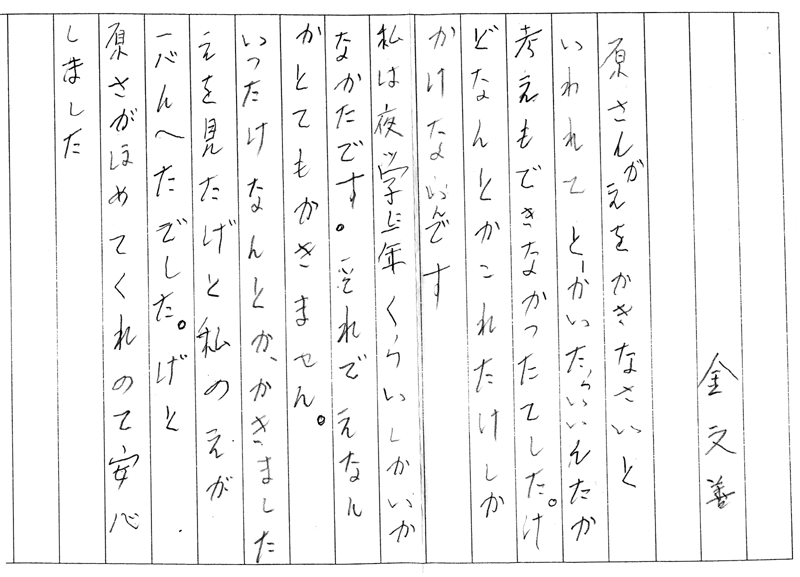 金文善
原さんがえをかきなさいと
いわれてとーかいたらいいんたか
考えもできなかったてした。け
どなんとかこれたけしか
かけないんです
私は夜学上年くらいしかいか
なかたです。それでえなん
かとてもかきません。
いったけなんとか、かきました
えを見たげと私のえが
一ばんへたでした。げと
原さがほめてくれのて安心
しました